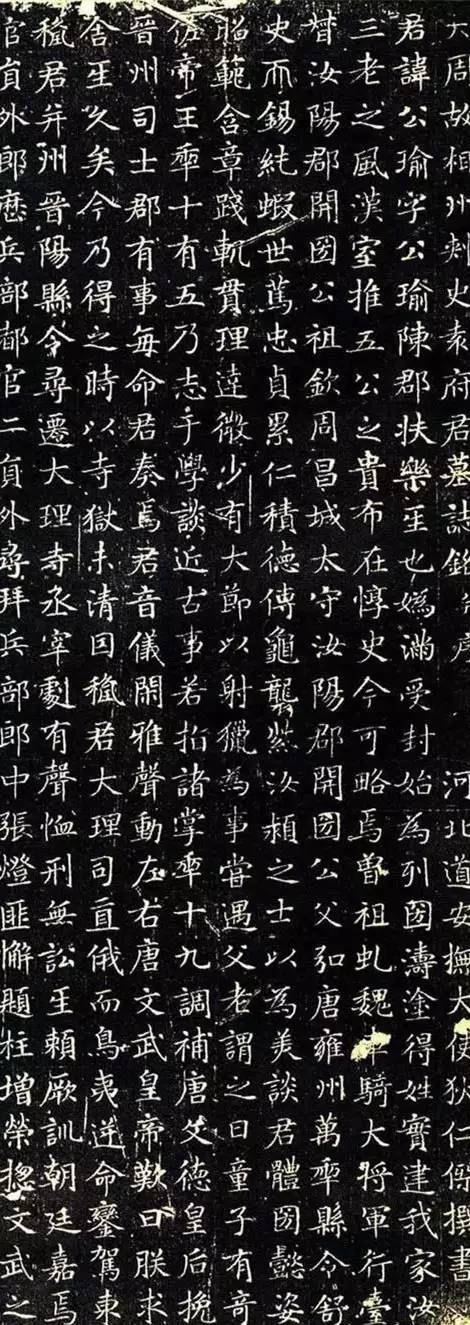 大周故相州刾史袁府君墓誌銘并序 河北道安撫大使狄仁傑撰書
君諱公瑜字公瑜陳郡扶樂𤯔也媯滿受封始為列圀濤塗得姓實建我家汝
三老之風漢室推五公之貴布在惇史今可略焉曾祖虬魏車騎大將軍行臺
督汝陽郡開圀公祖欽周昌城太守汝陽郡開圀公父弘唐雍州萬𠡦縣令舒
史而錫純蝦世篤忠貞累仁積德傳龜襲紫汝潁之士以為美談君體圀懿姿
昭範含章踐軌貫理達微少有大節以射獵為事嘗遇父老謂之曰童子有奇
佐帝王𠡦十有五乃志于學談近古事若指諸掌𠡦十九調補唐文德皇后挽
晉州司士郡有事每命君奏焉君音儀閑雅聲動左右唐文武皇帝歎曰朕求
舍𤯔久矣今乃得之時以寺獄未清因𥠢君大理司直俄而鳥夷逆命鑾駕東
𥠢君并州晉陽縣令尋遷大理寺丞宰劇有聲恤刑無訟𤯔賴厥訓朝廷嘉焉
官員外郎歷兵部都官二員外尋拜兵部郎中張燈匪懈題柱增榮揔文武之